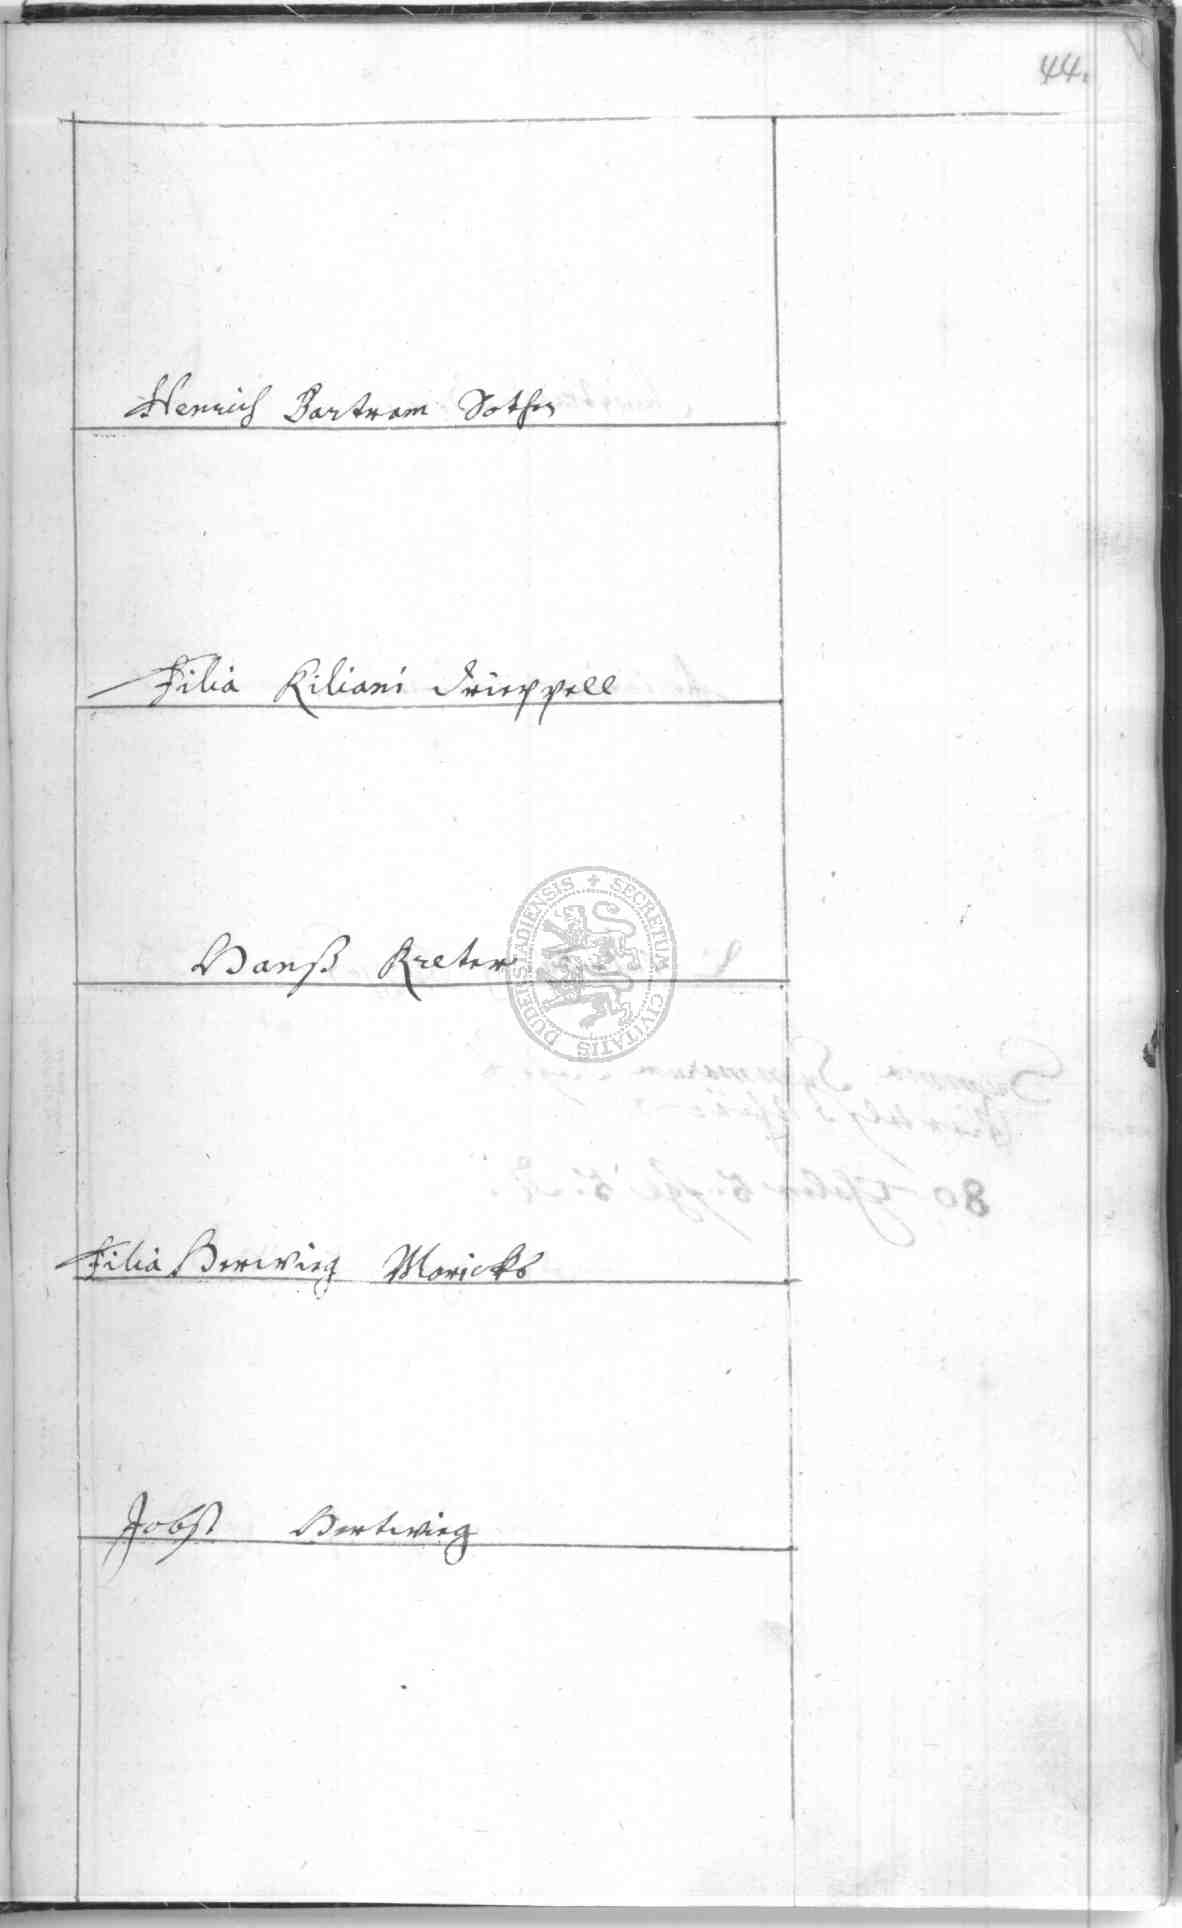 44.
Henrich Bartram Sothen
Filia Kiliani Drieppell
Hanß Kreter
SECRETUM CIVITATIS DUDERSTADIENSIS
Filia Herwieg Maricks
Jobst Hertwieg